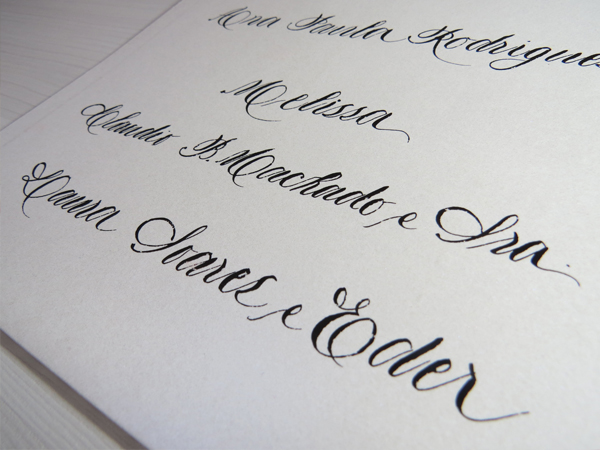 Ana Paula Rodrigues
Melissa
Claudio B. Machado, e Sra.
Laura Soares, e Eder